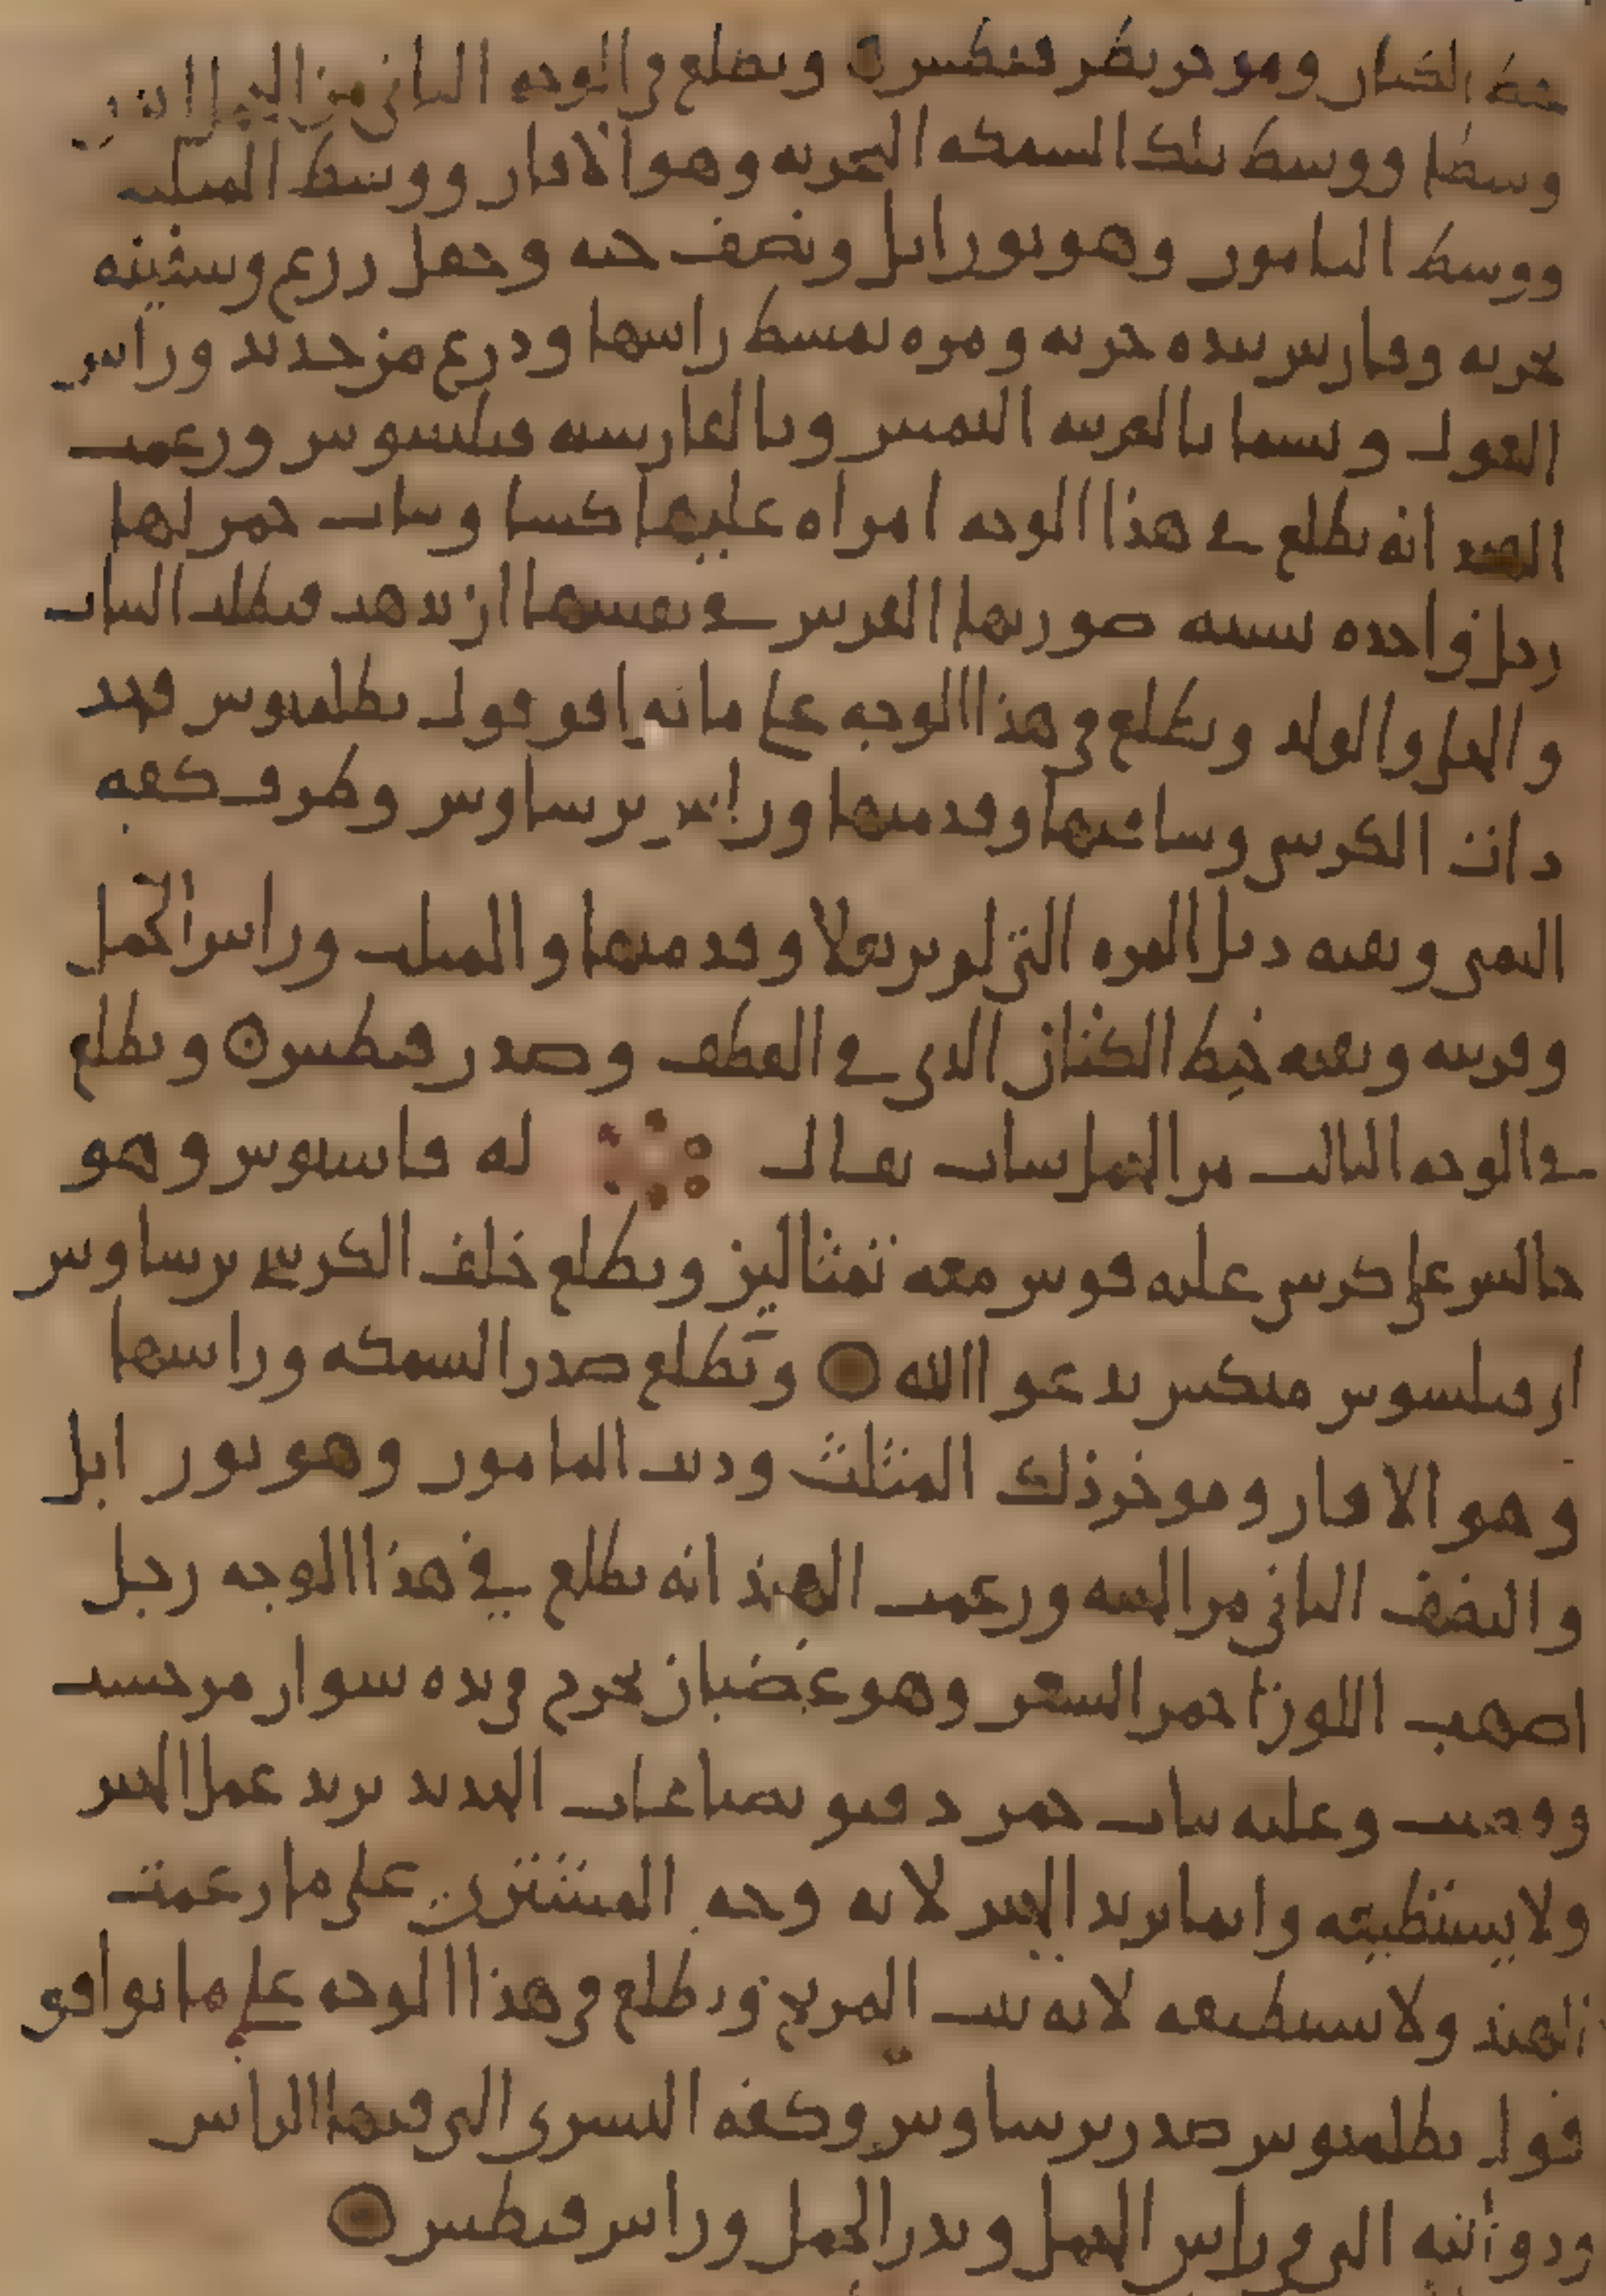 خيط الكتان وموخر بطن قيطس ۝ ويطلع في الوجه الثاني من الحمل
وسطا ووسط تلك السمكة البحريه وهو الافار ووسط المثلث
ووسط البامور وهو بور ابل ونصف حيه وحقل زرع وسفينه
بحريه وفارس بيده حربه ومره تمشط راسها ودرع من حديد وراس
الغول ويسما بالعربيه وبالفارسيه فيلسوس وزعمت
الهند انه يطلع في هذا الوجه امراه عليها كسا وثياب حمر لها
رجل واحده تشبه صورتها الفرس في نفسها ان تذهب فتطلب الثياب
والحلي والولد ويطلع في هذا الوجه على ما يوافق قول بطلميوس فخذ
ذات الكرسي وساقيها وقدميها وراس برساوس وطرف كفه
اليمنى وبقيه ذيل المره التي لم تر بعلا وقدميها والمثلث وراس الحمل
وقرنيه وبقيه خيط الكتان الذي في القطف وصدر قيطس ۝ ويطلع
في الوجه الثالث من الحمل شاب يقال له قاسيوس وهو
جالس على كرسي عليه فرس معه تمثالين ويطلع خلف الكرسي برساوس
ار فيلسوس منكس يدعو االله ۝ وتطلع صدر السمكه وراسها
وهو الافار وموخر ذلك المثلث وذنب البامور وهو بور ابل
والنصف الثاني من الحيه وزعمت الهند انه يطلع في هذا الوجه رجل
اصهب اللون احمر الشعر وهو غضبان يحرج في يده سوار من خشب
وقضيب وعليه ثياب حمر رفيق بصناعات الحديد يريد عمل الخير
ولا يستطيعه وانما يريد الخير لانه وجه المشتري على ما زعمت
الهند ولا يستطيعه لانه بيت المريخ ويطلع في هذا الوجه على ما يوافق
قول بطلميوس صدر برساوس وكفه اليسرى التي فيها الراس
وذوائبه التي في راس الحمل وبدن الحمل وراس قيطس ۝